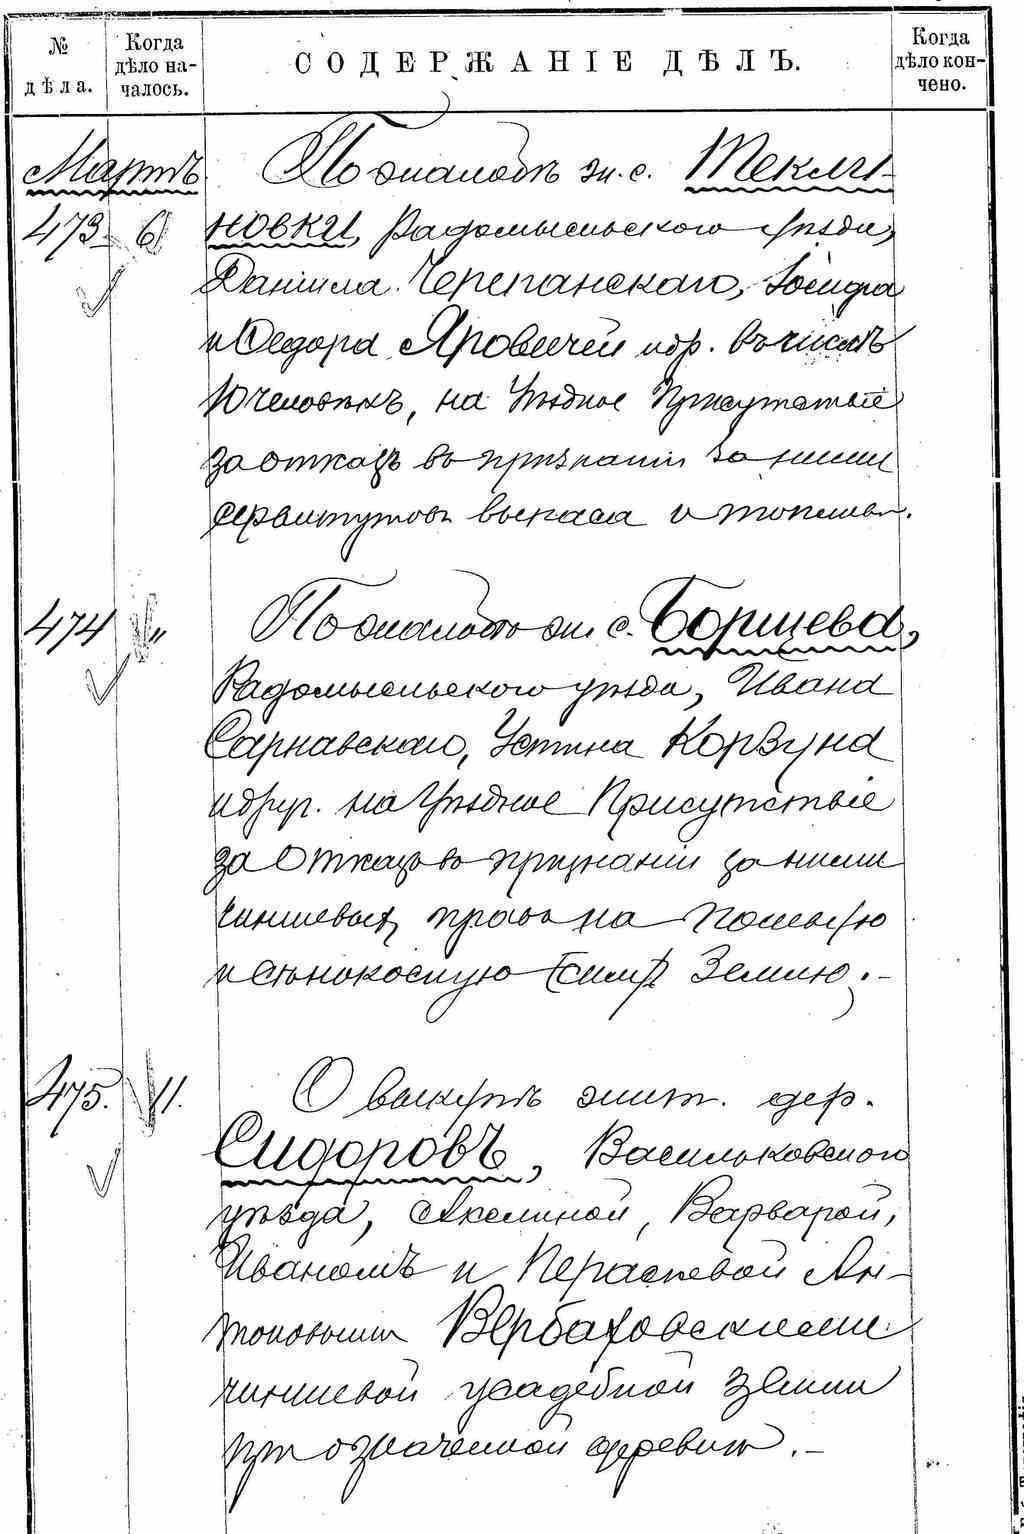 № дѣла.
Когда дѣло на-
чалось.
СОДЕРЖАНІЕ ДѢЛЪ.
Когда дѣло кон-
чено.
Мартъ По жалобѣ ж. с. Текли-
473 6 новки, Радомысльскаго уѣзда,
Даніила Черепанскаго, Іосифа
и Федора Яровичей и др. въ числѣ
10 человѣкъ, на Уѣздное Присутствіе
за отказъ въ признаніи за ними
сервитутовъ выпаса и топлива.
474 " По жалобѣ жит. с. Борщева,
Радомысльскаго уѣзда, Ивана
Сарнавскаго, Устина Корзуна
и друг. на Уѣздное Присутствіе
за отказъ въ признаніи за ними
чиншевыхъ правъ на полевую
и сѣнокосную землю.-
475. 11. О выкупѣ жит. дер.
Сидоровъ, Васильковскаго
уѣзда, Акелиной, Варварой,
Иваномъ и Параскевой Ан-
тоновыми Вербаховскими
чиншевой усадебной земли
при означенной деревни.-